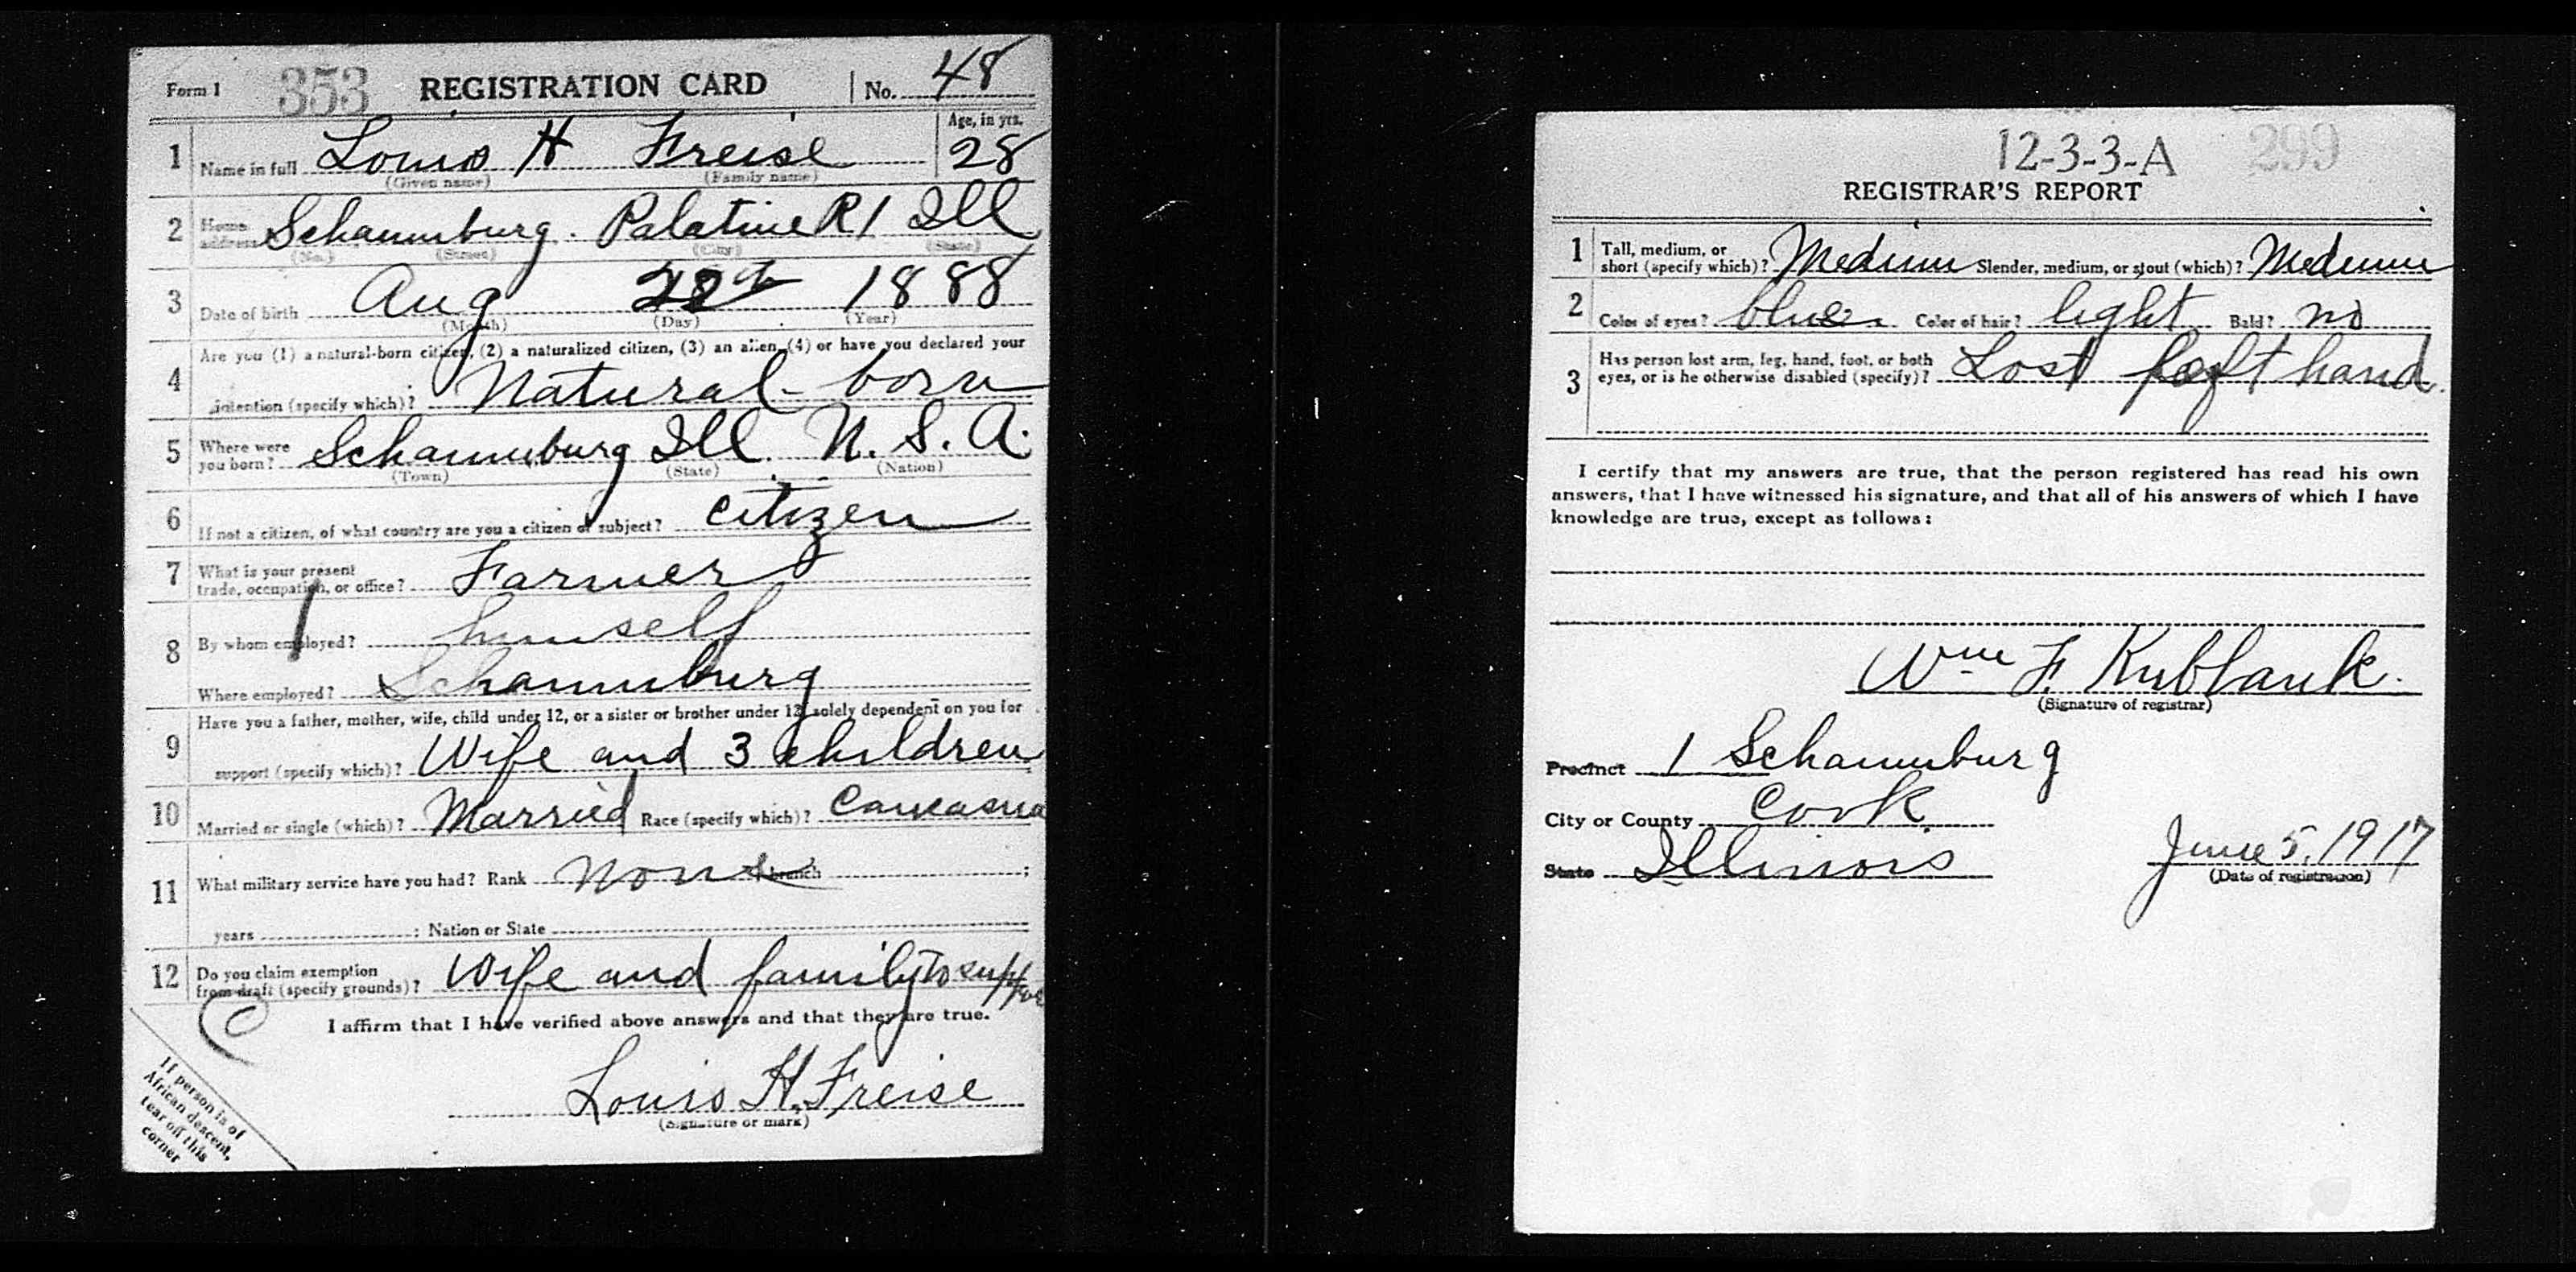 Form 1 353 REGISTRATION CARD No. 48
Age, in yrs.
1 Name in full Louis H Freise 28
(Given name) (Family name)
2 Home address Schaumburg. Palatine R1 Ill
(No.) (Street) (City) (State)
3 Date of birth Aug 1888
(Month) (Day) (Year)
4 Are you (1) a natural-born citizen, (2) a naturalized citizen, (3) an alien, (4) or have you declared your
intention (specify which)? Natural-born
5 Where were you born? Schaumburg Ill. U. S. A.
(Town) (State) (Nation)
6 If not a citizen, of what country are you a citizen or subject? citizen
7 What is your present trade, occupation, or office? Farmer
8 By whom employed? himself
Where employed? Schaumburg
9 Have you a father, mother, wife, child under 12, or a sister or brother under 12, solely dependent on you for
support (specify which)? Wife and 3 children
10 Married or single (which)? Married Race (specify which)? Caucasia
11 What military service have you had? Rank None branch ;
years ; Nation or State
12 Do you claim exemption from draft (specify grounds)? Wife and family to support
I affirm that I have verified above answers and that they are true.
Louis H. Freise
(Signature or mark)
If person is of
African descent,
tear off this
corner
12-3-3-A 299
REGISTRAR'S REPORT
1 Tall, medium, or short (specify which)? Medium Slender, medium, or stout (which)? Medium
2 Color of eyes? blue Color of hair? light Bald? no
3 Has person lost arm, leg, hand, foot, or both
eyes, or is he otherwise disabled (specify)? Lost left hand.
I certify that my answers are true, that the person registered has read his own
answers, that I have witnessed his signature, and that all of his answers of which I have
knowledge are true, except as follows:
Wm F. Kublank.
(Signature of registrar)
Precinct 1 Schaumburg
City or County Cook
State Illinois June 5, 1917
(Date of registration)